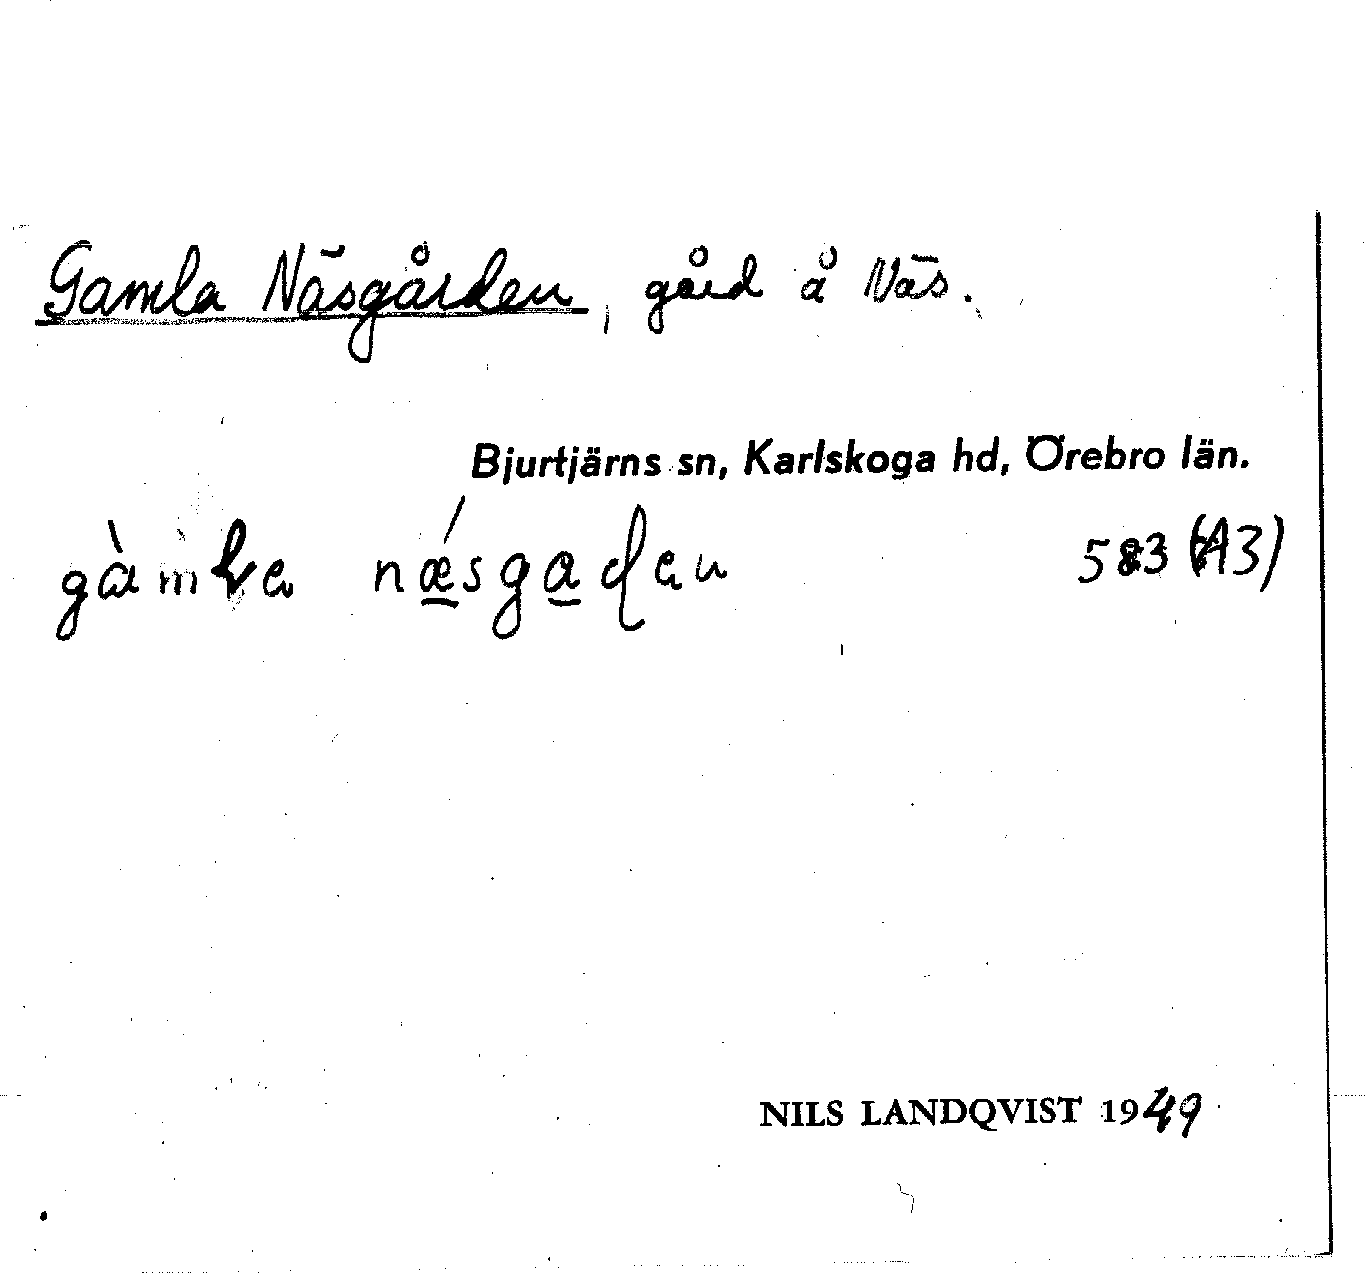 Gamla Näsgården, gård å Näs.
Bjurtjärns sn, Karlskoga hd, Örebro län.
gàmla nǽ̲sga̲ɖen 583 (A3)
NILS LANDQVIST 1949